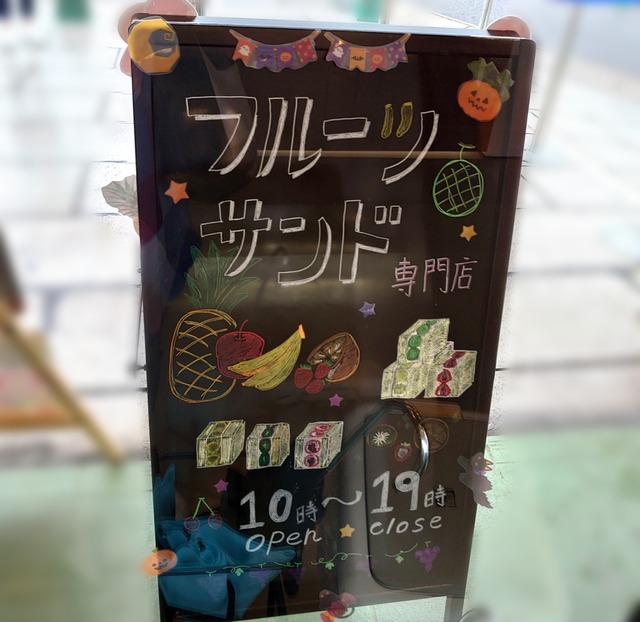 フルーツ
サンド
専門店
10時～19時
open close